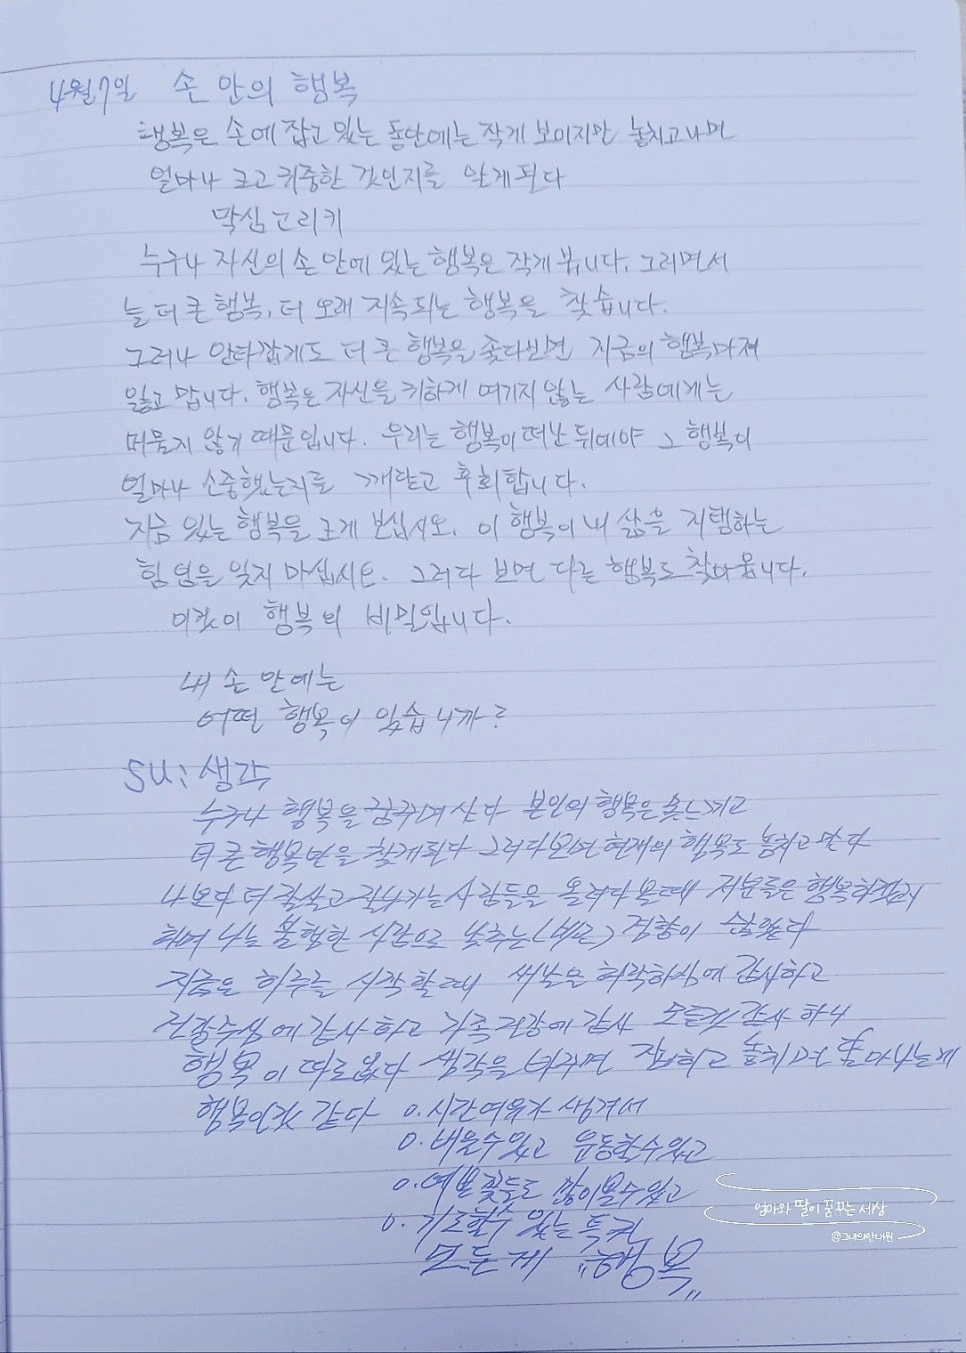 4월7일 손 안의 행복
행복은 손에 잡고 있는 동안에는 작게 보이지만 놓치고나면
얼마나 크고 귀중한 것인지를 알게된다
막심고리키
누구나 자신의 손 안에 있는 행복은 작게 봅니다. 그러면서
늘 더 큰 행복, 더 오래 지속되는 행복을 찾습니다.
그러나 안타깝게도 더 큰 행복을 좇다보면 지금의 행복마져
잃고 맙니다. 행복은 자신을 귀하게 여기지 않는 사람에게는
머물지 않기 때문입니다. 우리는 행복이 떠난 뒤에야 그 행복이
얼마나 소중했는지를 깨닫고 후회합니다.
지금 있는 행복을 크게 보십시오. 이 행복이 내 삶을 지탱하는
힘 임을 잊지 마십시오. 그러다 보면 다른 행복도 찾아옵니다.
이것이 행복의 비밀입니다.
내 손 안에는
어떤 행복이 있습니까?
SU: 생각
누구나 행복을 꿈꾸며 산다 본인의 행복은 못느끼고
더 큰 행복만을 찾게된다 그러다보면 현재의 행복도 놓치고 만다
나보다 더 잘살고 잘나가는 사람들을 올려다 볼때 저분들은 행복하겠지
하며 나는 불행한 사람으로 낮추는(비교) 경향이 있었다
지금은 하루를 시작 할때 새날을 허락하심에 감사하고
건강주심에 감사하고 가족건강에 감사 모든것 감사 하니
행복이 따로없다 생각을 바꾸면 집하고 놓치며 살아나는게
행복인것 같다 0. 시간여유가 생겨서
0. 배울수있고 운동할수있고
0. 예쁜 꽃들도 많이볼수있고
0. 기도할수 있는 특권
모든게 "행복"
엄마와 딸이 꿈꾸는 세상